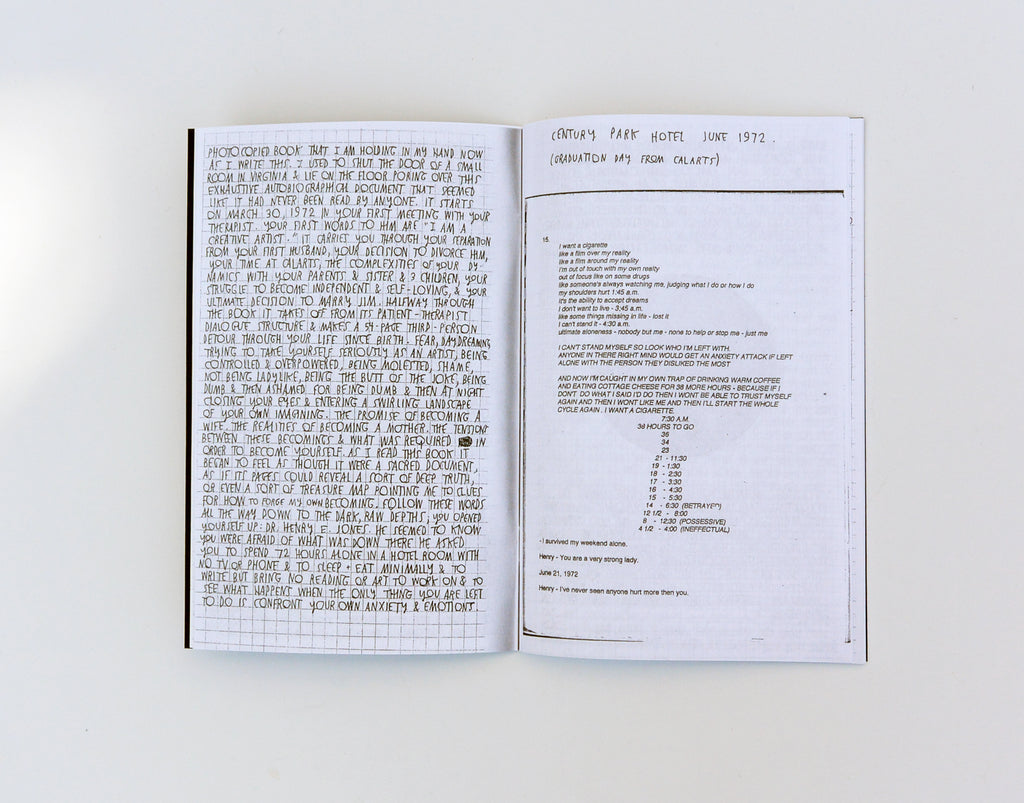 PHOTOCOPIED BOOK THAT I AM HOLDING IN MY HAND NOW
AS I WRITE THIS. I USED TO SHUT THE DOOR OF A SMALL
ROOM IN VIRGINIA & LIE ON THE FLOOR PORING OVER THIS
EXHAUSTIVE AUTOBIOGRAPHICAL DOCUMENT THAT SEEMED
LIKE IT HAD NEVER BEEN READ BY ANYONE. IT STARTS
ON MARCH 30, 1972 IN YOUR FIRST MEETING WITH YOUR
THERAPIST. YOUR FIRST WORDS TO HIM ARE "I AM A
CREATIVE ARTIST." IT CARRIES YOU THROUGH YOUR SEPARATION
FROM YOUR FIRST HUSBAND, YOUR DECISION TO DIVORCE HIM,
YOUR TIME AT CALARTS, THE COMPLEXITIES OF YOUR DY-
NAMICS WITH YOUR PARENTS & SISTER & 3 CHILDREN, YOUR
STRUGGLE TO BECOME INDEPENDENT & SELF-LOVING, & YOUR
ULTIMATE DECISION TO MARRY JIM. HALFWAY THROUGH
THE BOOK IT TAKES OFF FROM ITS PATIENT-THERAPIST
DIALOGUE STRUCTURE & MAKES A 54-PAGE THIRD-PERSON
DETOUR THROUGH YOUR LIFE SINCE BIRTH. FEAR, DAYDREAMING
TRYING TO TAKE YOURSELF SERIOUSLY AS AN ARTIST, BEING
CONTROLLED & OVERPOWERED, BEING MOLESTED, SHAME,
NOT BEING LADYLIKE, BEING THE BUTT OF THE JOKE, BEING
DUMB & THEN ASHAMED FOR BEING DUMB & THEN AT NIGHT
CLOSING YOUR EYES & ENTERING A SWIRLING LANDSCAPE
OF YOUR OWN IMAGINING. THE PROMISE OF BECOMING A
WIFE. THE REALITIES OF BECOMING A MOTHER. THE TENSIONS
BETWEEN THESE BECOMINGS & WHAT WAS REQUIRED IN
ORDER TO BECOME YOURSELF. AS I READ THIS BOOK IT
BEGAN TO FEEL AS THOUGH IT WERE A SACRED DOCUMENT,
AS IF ITS PAGES COULD REVEAL A SORT OF DEEP TRUTH,
OR EVEN A SORT OF TREASURE MAP POINTING ME TO CLUES
FOR HOW TO FORGE MY OWN BECOMING. FOLLOW THESE WORDS
ALL THE WAY DOWN TO THE DARK, RAW DEPTHS; YOU OPENED
YOURSELF UP: DR. HENRY E. JONES. HE SEEMED TO KNOW
YOU WERE AFRAID OF WHAT WAS DOWN THERE HE ASKED
YOU TO SPEND 72 HOURS ALONE IN A HOTEL ROOM WITH
NO TV OR PHONE & TO SLEEP + EAT MINIMALLY & TO
WRITE BUT BRING NO READING OR ART TO WORK ON & TO
SEE WHAT HAPPENS WHEN THE ONLY THING YOU ARE LEFT
TO DO IS CONFRONT YOUR OWN ANXIETY & EMOTIONS.
CENTURY PARK HOTEL JUNE 1972.
(GRADUATION DAY FROM CALARTS)
15.
I want a cigarette
like a film over my reality
like a film around my reality
I'm out of touch with my own reality
out of focus like on some drugs
like someone's always watching me, judging what I do or how I do
my shoulders hurt 1:45 a.m.
it's the ability to accept dreams
I don't want to live - 3:45 a.m.
like some things missing in life - lost it
I can't stand it - 4:30 a.m.
ultimate aloneness - nobody but me - none to help or stop me - just me
I CAN'T STAND MYSELF SO LOOK WHO I'M LEFT WITH.
ANYONE IN THERE RIGHT MIND WOULD GET AN ANXIETY ATTACK IF LEFT
ALONE WITH THE PERSON THEY DISLIKED THE MOST
AND NOW I'M CAUGHT IN MY OWN TRAP OF DRINKING WARM COFFEE
AND EATING COTTAGE CHEESE FOR 38 MORE HOURS - BECAUSE IF I
DON'T. DO WHAT I SAID I'D DO THEN I WONT BE ABLE TO TRUST MYSELF
AGAIN AND THEN I WONT LIKE ME AND THEN I'LL START THE WHOLE
CYCLE AGAIN. I WANT A CIGARETTE.
7:30 A.M.
38 HOURS TO GO
36
34
23
21 - 11:30
19 - 1:30
18 - 2:30
17 - 3:30
16 - 4:30
15 - 5:30
14 - 6:30 (BETRAYE")
12 1/2 - 8:00
8 - 12:30 (POSSESSIVE)
4 1/2 - 4:00 (INEFFECTUAL)
- I survived my weekend alone.
Henry - You are a very strong lady.
June 21, 1972
Henry - I've never seen anyone hurt more then you.